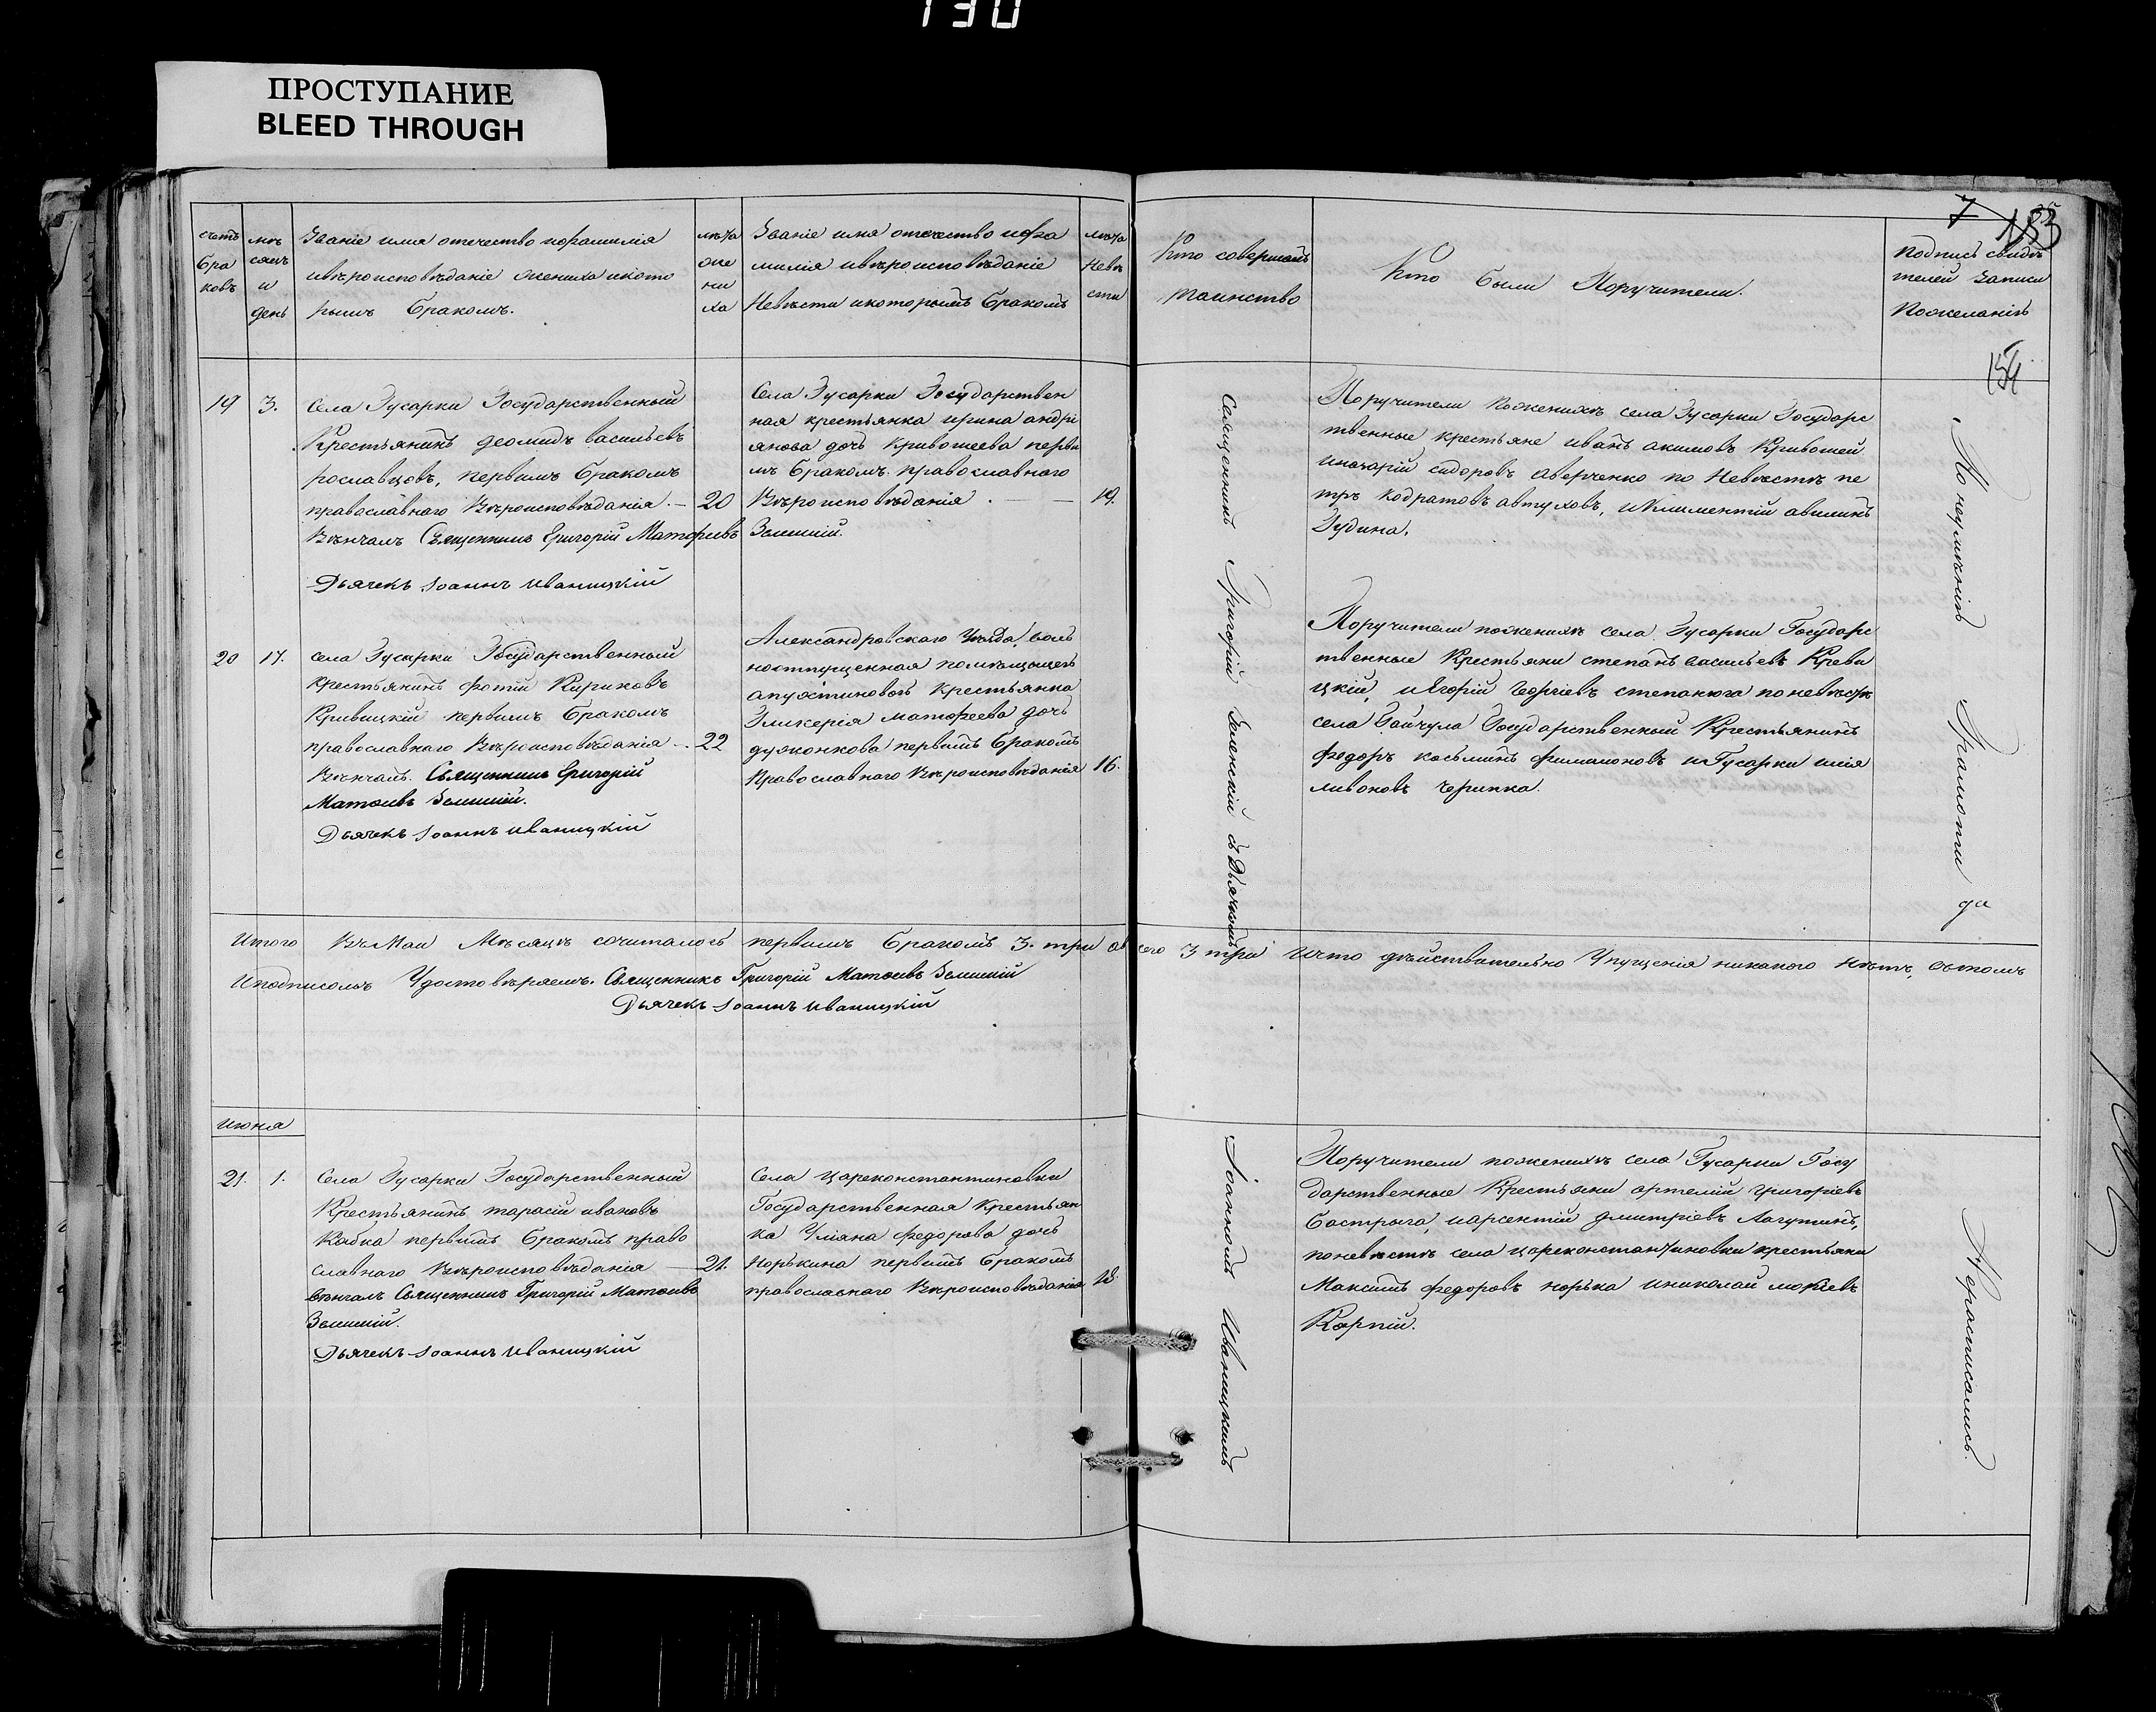 130
ПРОСТУПАНИЕ
BLEED THROUGH
счетъ
бра
ковъ
мѣ
сяцъ
и
день
Званіе имя отечество ифамилія
ивѣроисповѣданіе жениха икото
рымъ бракомъ.
лѣта
же
ни
ха
Званіе имя отечество ифа
милія ивѣроисповѣданіе
Невѣсти икоторымъ бракомъ
лѣта
Невѣ
сти
Кто совершалъ
таинство
Кто были Поручители.
Подпись свидѣ
телей записи
Пожеланію
7
153
154
19
3.
Села Гусарки Государственный
Крестьянинъ деомидъ васильевъ
рославцовъ, первымъ бракомъ
православнаго Вѣроисповѣданія. —
20
Вѣнчалъ Священникъ Григорій Матфіевъ Зеленскій.
Дьячекъ Іоаннъ Иваницкій
Села Гусарки Государствен
ная крестьянка ирина андрі
янова дочь Кривошеева первы
мъ бракомъ православнаго
Вѣроисповѣданія. —
19.
Поручители пожених? села Гусарки Государс
твенные крестьяне иванъ акимовъ Кривошей
иназарій сидоровъ аверченко по Невѣстѣ пе
тръ кодратовъ автуховъ, иКлиментій авилинъ
Гудина.
20
17.
села Гусарки Государственный
крестьянинъ фотій Кириковъ
Кривицкій первымъ бракомъ
православнаго Вѣроисповѣданія —.
22
Вѣнчалъ. Священникъ Григорій
Матвіевъ Зеленскій.
Дьячекъ Іоаннъ Иваницкій
Александровскаго Уѣзда, воль
ноотпущенная помѣщицей
апухтиновой крестьянка
Гликерія матфеева дочь
дулконкова первымъ бракомъ
Православнаго Вѣроисповѣданія
16.
Поручители поженихѣ села Гусарки Государс
твенные Крестьяни степанъ васильевъ Криви
цкій, иЯгорій Георгіевъ степанюга поневѣстѣ
села Гайчула Государственный Крестьянинъ
федоръ косьминъ филимоновъ иГусарки илія
ливоновъ черинка.
Священникъ Григорій Зеленскій съ Дьячкомъ
Іоанномъ Иваницкимъ
Понеумѣнію Грамоти да
Нерасписались.
Итого ВъМаи Мѣсяцѣ сочиталось первымъ бракомъ 3. три авсего 3 три Ичто дѣйствительно Упущенія никакого нѣтъ, вътомъ
Иподписомъ Удостовѣряемъ. Священникъ Григорій Матвіевъ Зеленскій
Дьячекъ Іоаннъ Иваницкій
июня
21.
1.
Села Гусарки Государственный
Крестьянинъ тарасій ивановъ
Кабка первымъ бракомъ право
славнаго Вѣроисповѣданія —
21.
вѣнчалъ Священникъ Григорій Матвіевъ
Зеленскій.
Дьячекъ Іоаннъ Иваницкій
Села цареконстантиновки
Государственная крестьян
ка Уліяна федорова дочь
Норькина первымъ бракомъ
православнаго Вѣроисповѣданія
18.
Поручители поженихѣ села Гусарки Госу
дарственные Крестьяни артемій григоріевъ
бастрыга, иарсентій дмитріевъ Лагутинъ,
поневѣстѣ села цареконстантиновки крестьяни
Максимъ федоровъ норька иниколай мокіевъ
Карпій.